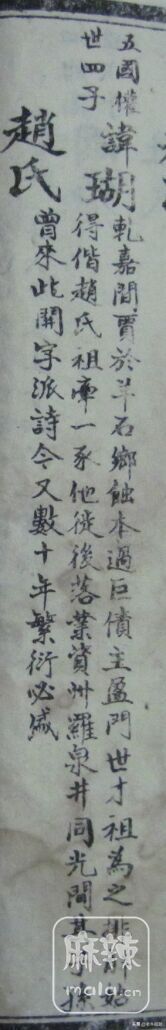 五國權
世四子
諱瑚
乾嘉間賈於羊石鄉蝕本過巨債主盈門世才祖為之排解始
得偕趙氏祖牽一豕他徙後落業資州羅泉井同光間其子孫
趙氏
曾來此開字派詩今又數十年繁衍必盛
麻辣
mala.cn